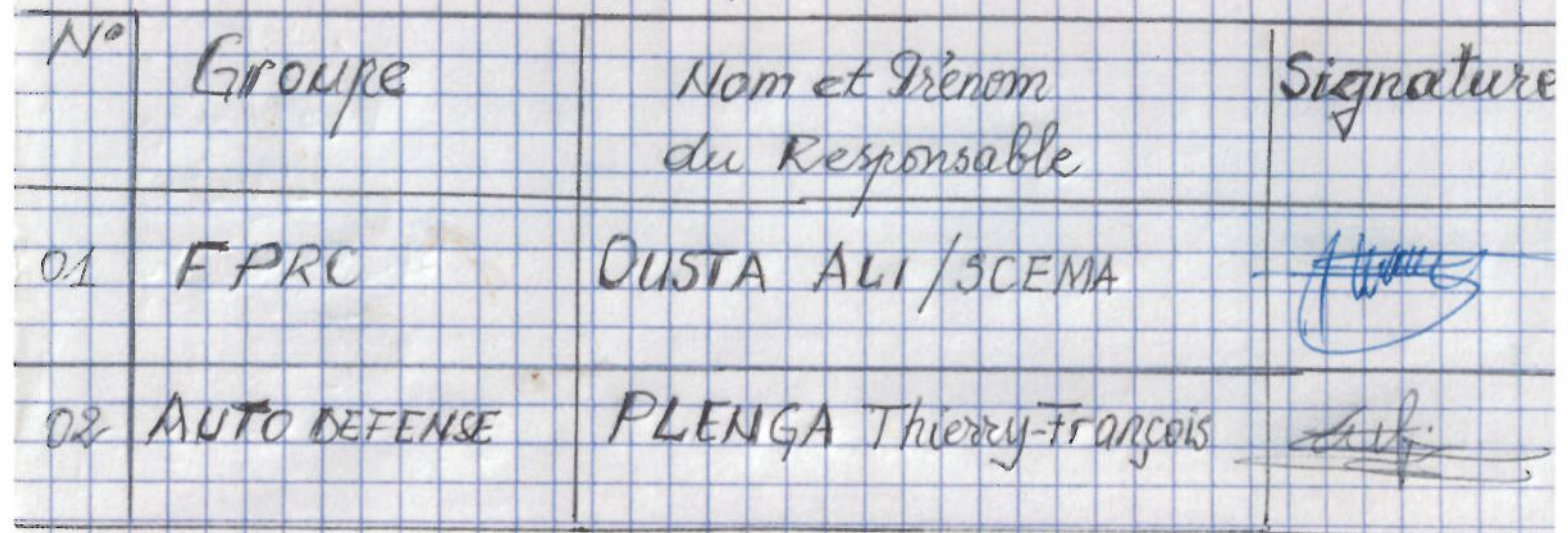 N° Groupe Nom et Prénom Signature
du Responsable
01 FPRC OUSTA ALI / SCEMA
02 AUTO DEFENSE PLENGA Thierry-François